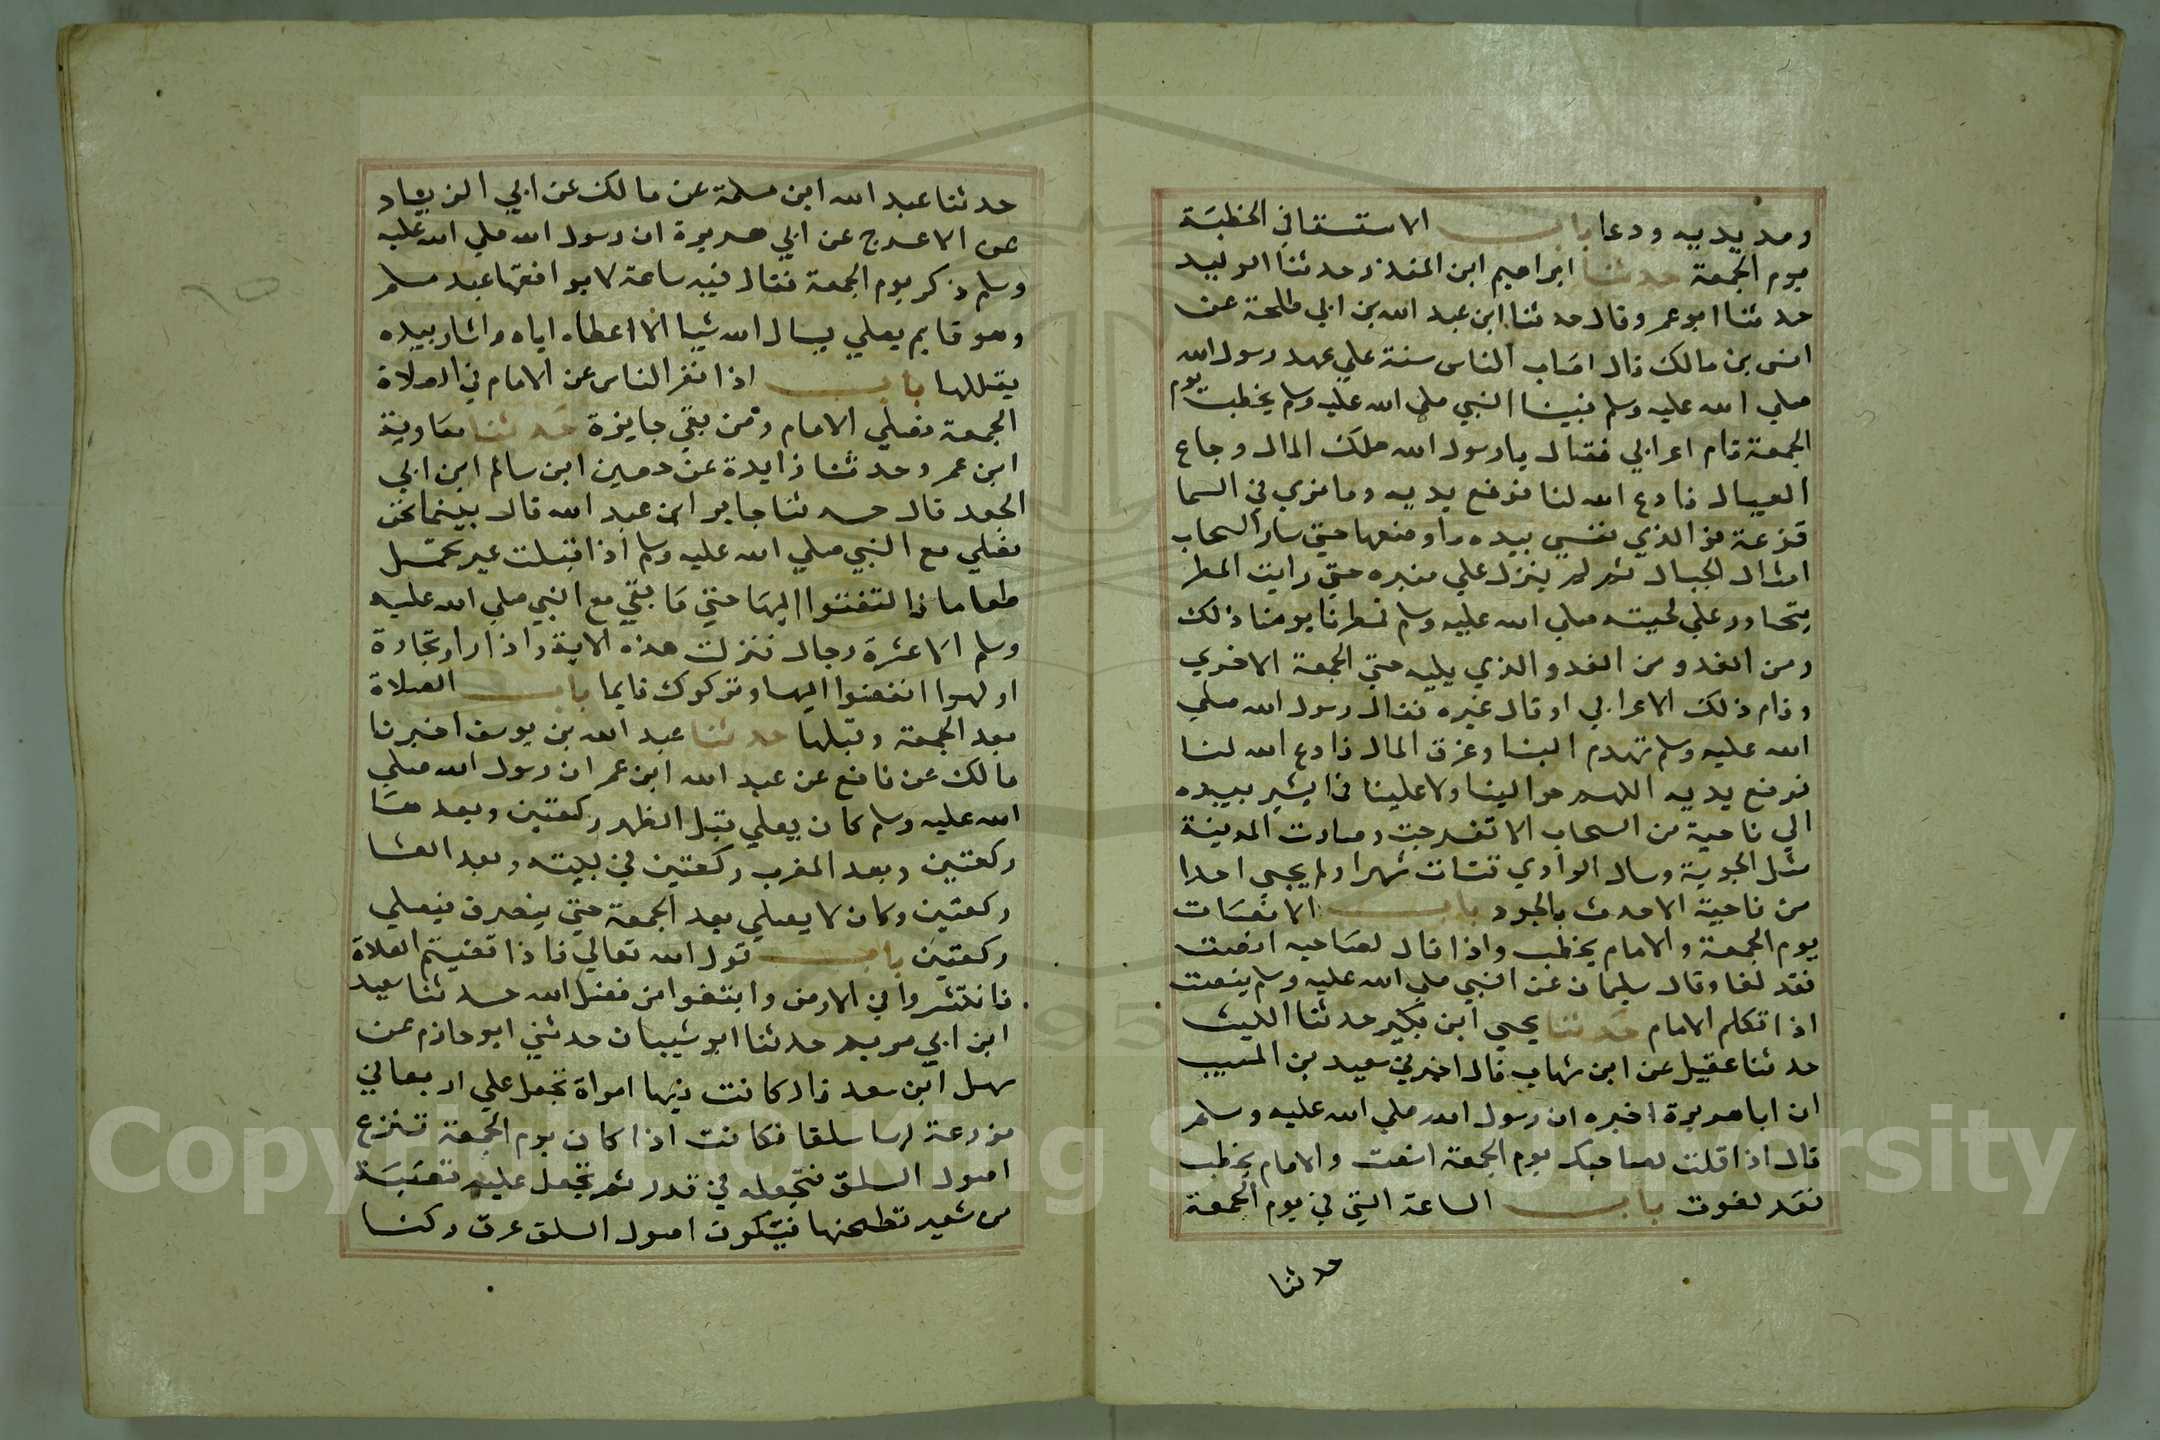 ومد يديه ودعا باب الاستسقا في الخطبة
يوم الجمعة حدثنا ابراهيم ابن المنذر حدثنا الوليد
حدثنا ابو عمر وقال حدثنا ابن عبد الله بن ابي طلحة عن
انس بن مالك قال اصاب الناس سنة علي عهد رسول الله
صلي الله عليه وسلم فبينا النبي صلي الله عليه وسلم يخطب يوم
الجمعة قام اعرابي فقال يا رسول الله هلك المال وجاع
العيال فادع الله لنا فرفع يديه وما نري في السما
قزعة فو الذي نفسي بيده ما وضعها حتي سار السحاب
امثال الجبال ثم لم ينزل علي منبره حتي رايت المطر
يتحادر علي لحيته صلي الله عليه وسلم فمطرنا يومنا ذلك
ومن الغد ومن الغد والذي يليه حتي الجمعة الاخري
وقام ذلك الاعرابي او قال غيره فقال رسول الله صلي
الله عليه وسلم تهدم البنا وغرق المال فادع الله لنا
فرفع يديه اللهم حوالينا ولا علينا فما يشير بيده
الي ناحية من السحاب الا تفرجت وصارت المدينة
مثل الجوبة وسال الوادي قنات شهرا ولم يجي احدا
من ناحية الا حدث بالجود باب الانصات
يوم الجمعة والامام يخطب واذا قال لصاحبه انصت
فقد لغا وقال سليمان عن النبي صلي الله عليه وسلم ينصت
اذا تكلم الامام حدثنا يحيي ابن بكير حدثنا الليث
حدثنا عقيل عن ابن شهاب قال اخبرني سعيد بن المسيب
ان ابا هريرة اخبره ان رسول الله صلي الله عليه وسلم
قال اذا قلت لصاحبك يوم الجمعة انصت والامام يخطب
فقد لغوت باب الساعة التي في يوم الجمعة
حدثنا
حدثنا عبد الله ابن مسلمة عن مالك عن ابي الزناد
عن الاعرج عن ابي هريرة ان رسول الله صلي الله عليه
وسلم ذكر يوم الجمعة فقال فيه ساعة لا يوافقها عبد مسلم
وهو قايم يصلي يسال الله شيا الا اعطاه اياه واشار بيده
يقللها باب اذا نفر الناس عن الامام في الصلاة
الجمعة فصلي الامام ومن بقي جايزة حدثنا معاوية
ابن عمر وحدثنا زايدة عن حصين ابن سالم ابن ابي
الجعد قال حدثنا جابر ابن عبد الله قال بينما نحن
نصلي مع النبي صلي الله عليه وسلم اذ اقبلت عير تحمل
طعاما فالتفتوا اليها حتي ما بقي مع النبي صلي الله عليه
وسلم الا عشرة رجال فنزلت هذه الاية واذا راو تجارة
او لهوا انفضوا اليها وتركوك قايما باب الصلاة
بعد الجمعة وقبلها حدثنا عبد الله بن يوسف اخبرنا
مالك عن نافع عن عبد الله ابن عمر ان رسول الله صلي
الله عليه وسلم كان يصلي قبل الظهر ركعتين وبعدها
ركعتين وبعد المغرب ركعتين في بيته وبعد العشا
ركعتين وكان لا يصلي بعد الجمعة حتي ينصرف فيصلي
ركعتين باب قول الله تعالي فاذا قضيتم الصلاة
فانتشروا في الارض وابتغوا من فضل الله حدثنا سعيد
ابن ابي مريم حدثنا ابو شيبان حدثني ابو حازم عن
سهل ابن سعد قال كانت فيها امراة تجعل علي اربعا في
مزرعة لها سلقا فكانت اذا كان يوم الجمعة تنزع
اصول السلق فتجعله في قدر ثم تجعل عليه قبضة
من شعير تطحنها فيتكون اصول السلق عرق وكنا
Copyright © King Saud University